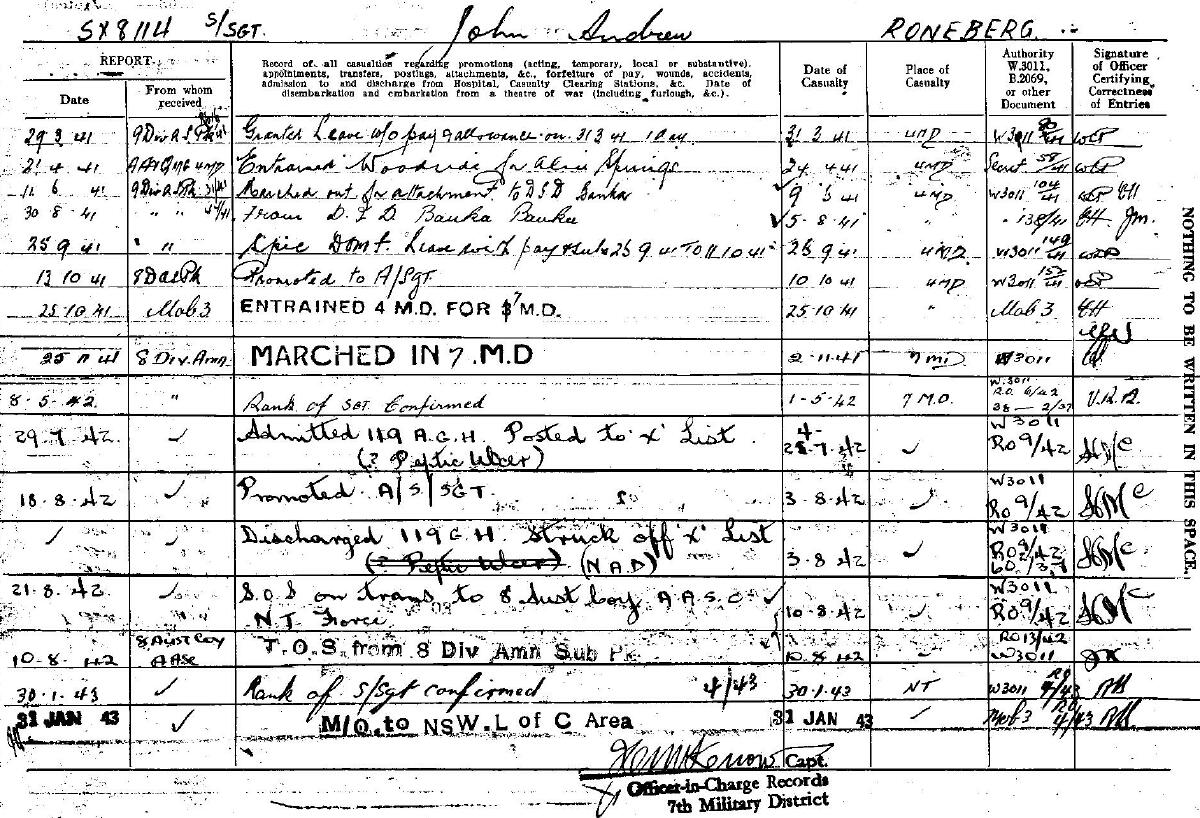 SX8114 S/SGT. John Andrew RONEBERG
REPORT
Date
From whom received
Record of all casualties regarding promotions (acting, temporary, local or substantive), appointments, transfers, postings, attachments, &c., forfeiture of pay, wounds, accidents, admission to and discharge from Hospital, Casualty Clearing Stations, &c. Date of disembarkation and embarkation from a theatre of war (including furlough, &c.).
Date of Casualty
Place of Casualty
Authority W.3011, B.2069, or other Document
Signature of Officer Certifying Correctness of Entries
29 3 41 Granted Leave w/o pay & allowance on 31 3 41 1 day 31 3 41 4MD W3011
21 4 41 4MD Entrained Woodside for Alice Springs 24 4 41 4MD Secret
11 6 41 Marched out for attachment to DSD Banka 9 5 41 4MD W3011 104/41
30 8 41 " " From D.S.D Banka Banka 5-8-41 " " 138/41
25 9 41 " " Spec Dom't. Leave with pay & subs 25 9 41 TO 11 10 41 25 9 41 4MD W3011 149/41
13 10 41 Promoted to A/Sgt 10 10 41 4MD W3011 152/41
25-10-41 Mob 3 ENTRAINED 4 M.D. FOR 7 M.D. 25-10-41 " Mob 3
25 11 41 8 Div. Amn MARCHED IN 7.M.D 2-11-41 7 MD W3011
8-5-42 " Rank of SGT Confirmed 1-5-42 7 M.D. W.3011 R.O. 6/42 38 — 2/37
29.7.42 ✓ Admitted 119 A.G.H. Posted to 'X' List
(? Peptic Ulcer) ✓ W3011 RO 9/42
18.8.42 ✓ Promoted A/S/SGT. 3-8-42 ✓ W3011 RO 9/42
✓ ✓ Discharged 119 G.H. Struck off 'X' List
(? Peptic Ulcer) (N.A.D) 3-8-42 ✓ W3011 RO 9/42 60/37
21.8.42 ✓ S.O.S on trans to 8 Aust Coy A A.S.C ✓
N.T. Force 10-8-42 W3011 RO 9/42
10-8-42 8 Aust Coy AASC T.O.S. from 8 Div Amn Sub Pk 10.8.42 RO 13/42 W3011
30.1.43 ✓ Rank of S/Sgt confirmed 4/43 30-1-43 NT W3011 RO 4/43
31 JAN 43 ✓ M/O. to NSW. L of C Area 31 JAN 43 ✓ Mob 3 RO 4/43
Capt.
Officer-in-Charge Records
7th Military District
NOTHING TO BE WRITTEN IN THIS SPACE.